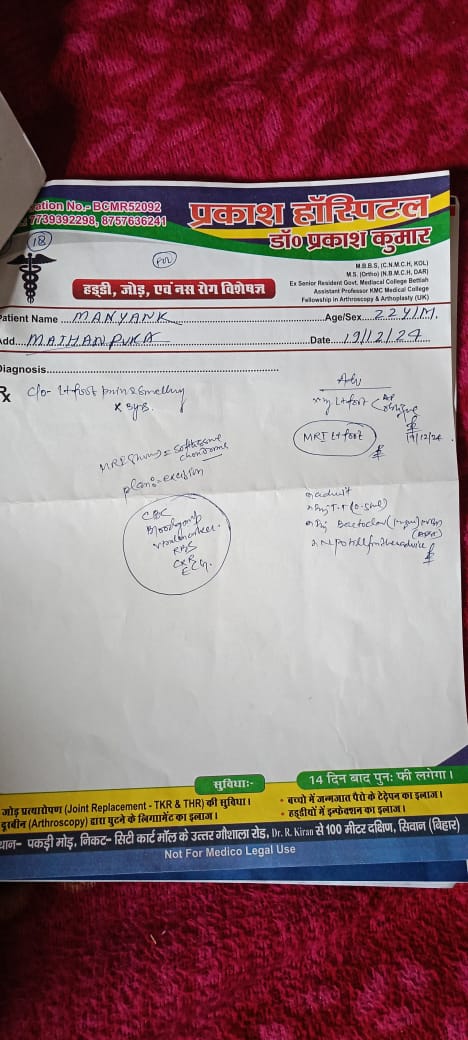 ation No.- BCMR52092
7739392298, 8757636241
प्रकाश हॉस्पिटल
डॉ० प्रकाश कुमार
18
M.B.B.S, (C.N.M.C.H, KOL)
M.S. (Ortho) (N.B.M.C.H, DAR)
Ex Senior Resident Govt. Mediacal College Bettiah
Assistant Professor KMC Medical College
Fellowship in Arthroscopy & Arthoplasty (UK)
हड्डी, जोड़, एवं नस रोग विशेषज्ञ
Patient Name MANYANK Age/Sex 22Y/M.
Add. Date 19/12/24
Diagnosis
Rx
c/o- Lt foot pain & Swelling
Adv
Lt foot
MRI Lt foot
19/12/24
MRI = Soft tissue
chondroma
plan:- excision
CBC
Blood group
viral marker.
RBS
CXR
ECG.
admit
Inj T.T (0.5ml)
Inj
NPO till further advice
सुविधाः-
14 दिन बाद पुनः फी लगेगा।
जोड़ प्रत्यारोपण (Joint Replacement - TKR & THR) की सुविधा।
• बच्चो में जन्मजात पैरो के टेढ़ेपन का इलाज।
दूरबीन (Arthroscopy) द्वारा घुटने के लिगामेंट का इलाज।
• हड्डीयों में इन्फेक्शन का इलाज।
थान- पकड़ी मोड़, निकट- सिटी कार्ट मॉल के उत्तर गौशाला रोड, Dr. R. Kiran से 100 मीटर दक्षिण, सिवान (बिहार)
Not For Medico Legal Use